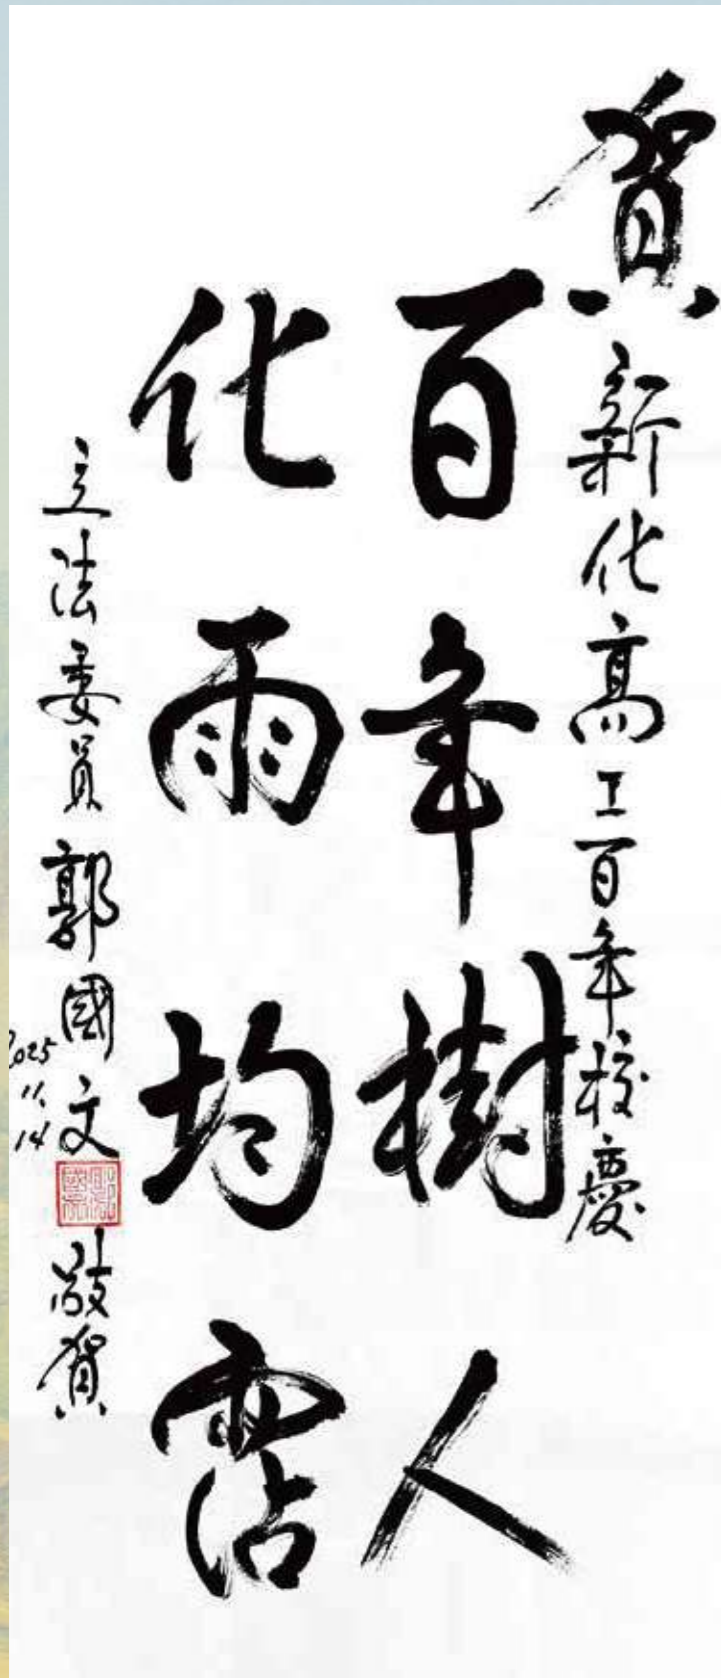 賀新化高工百年校慶
百年樹人
化雨均霑
立法委員郭國文敬賀
2025
11.
14